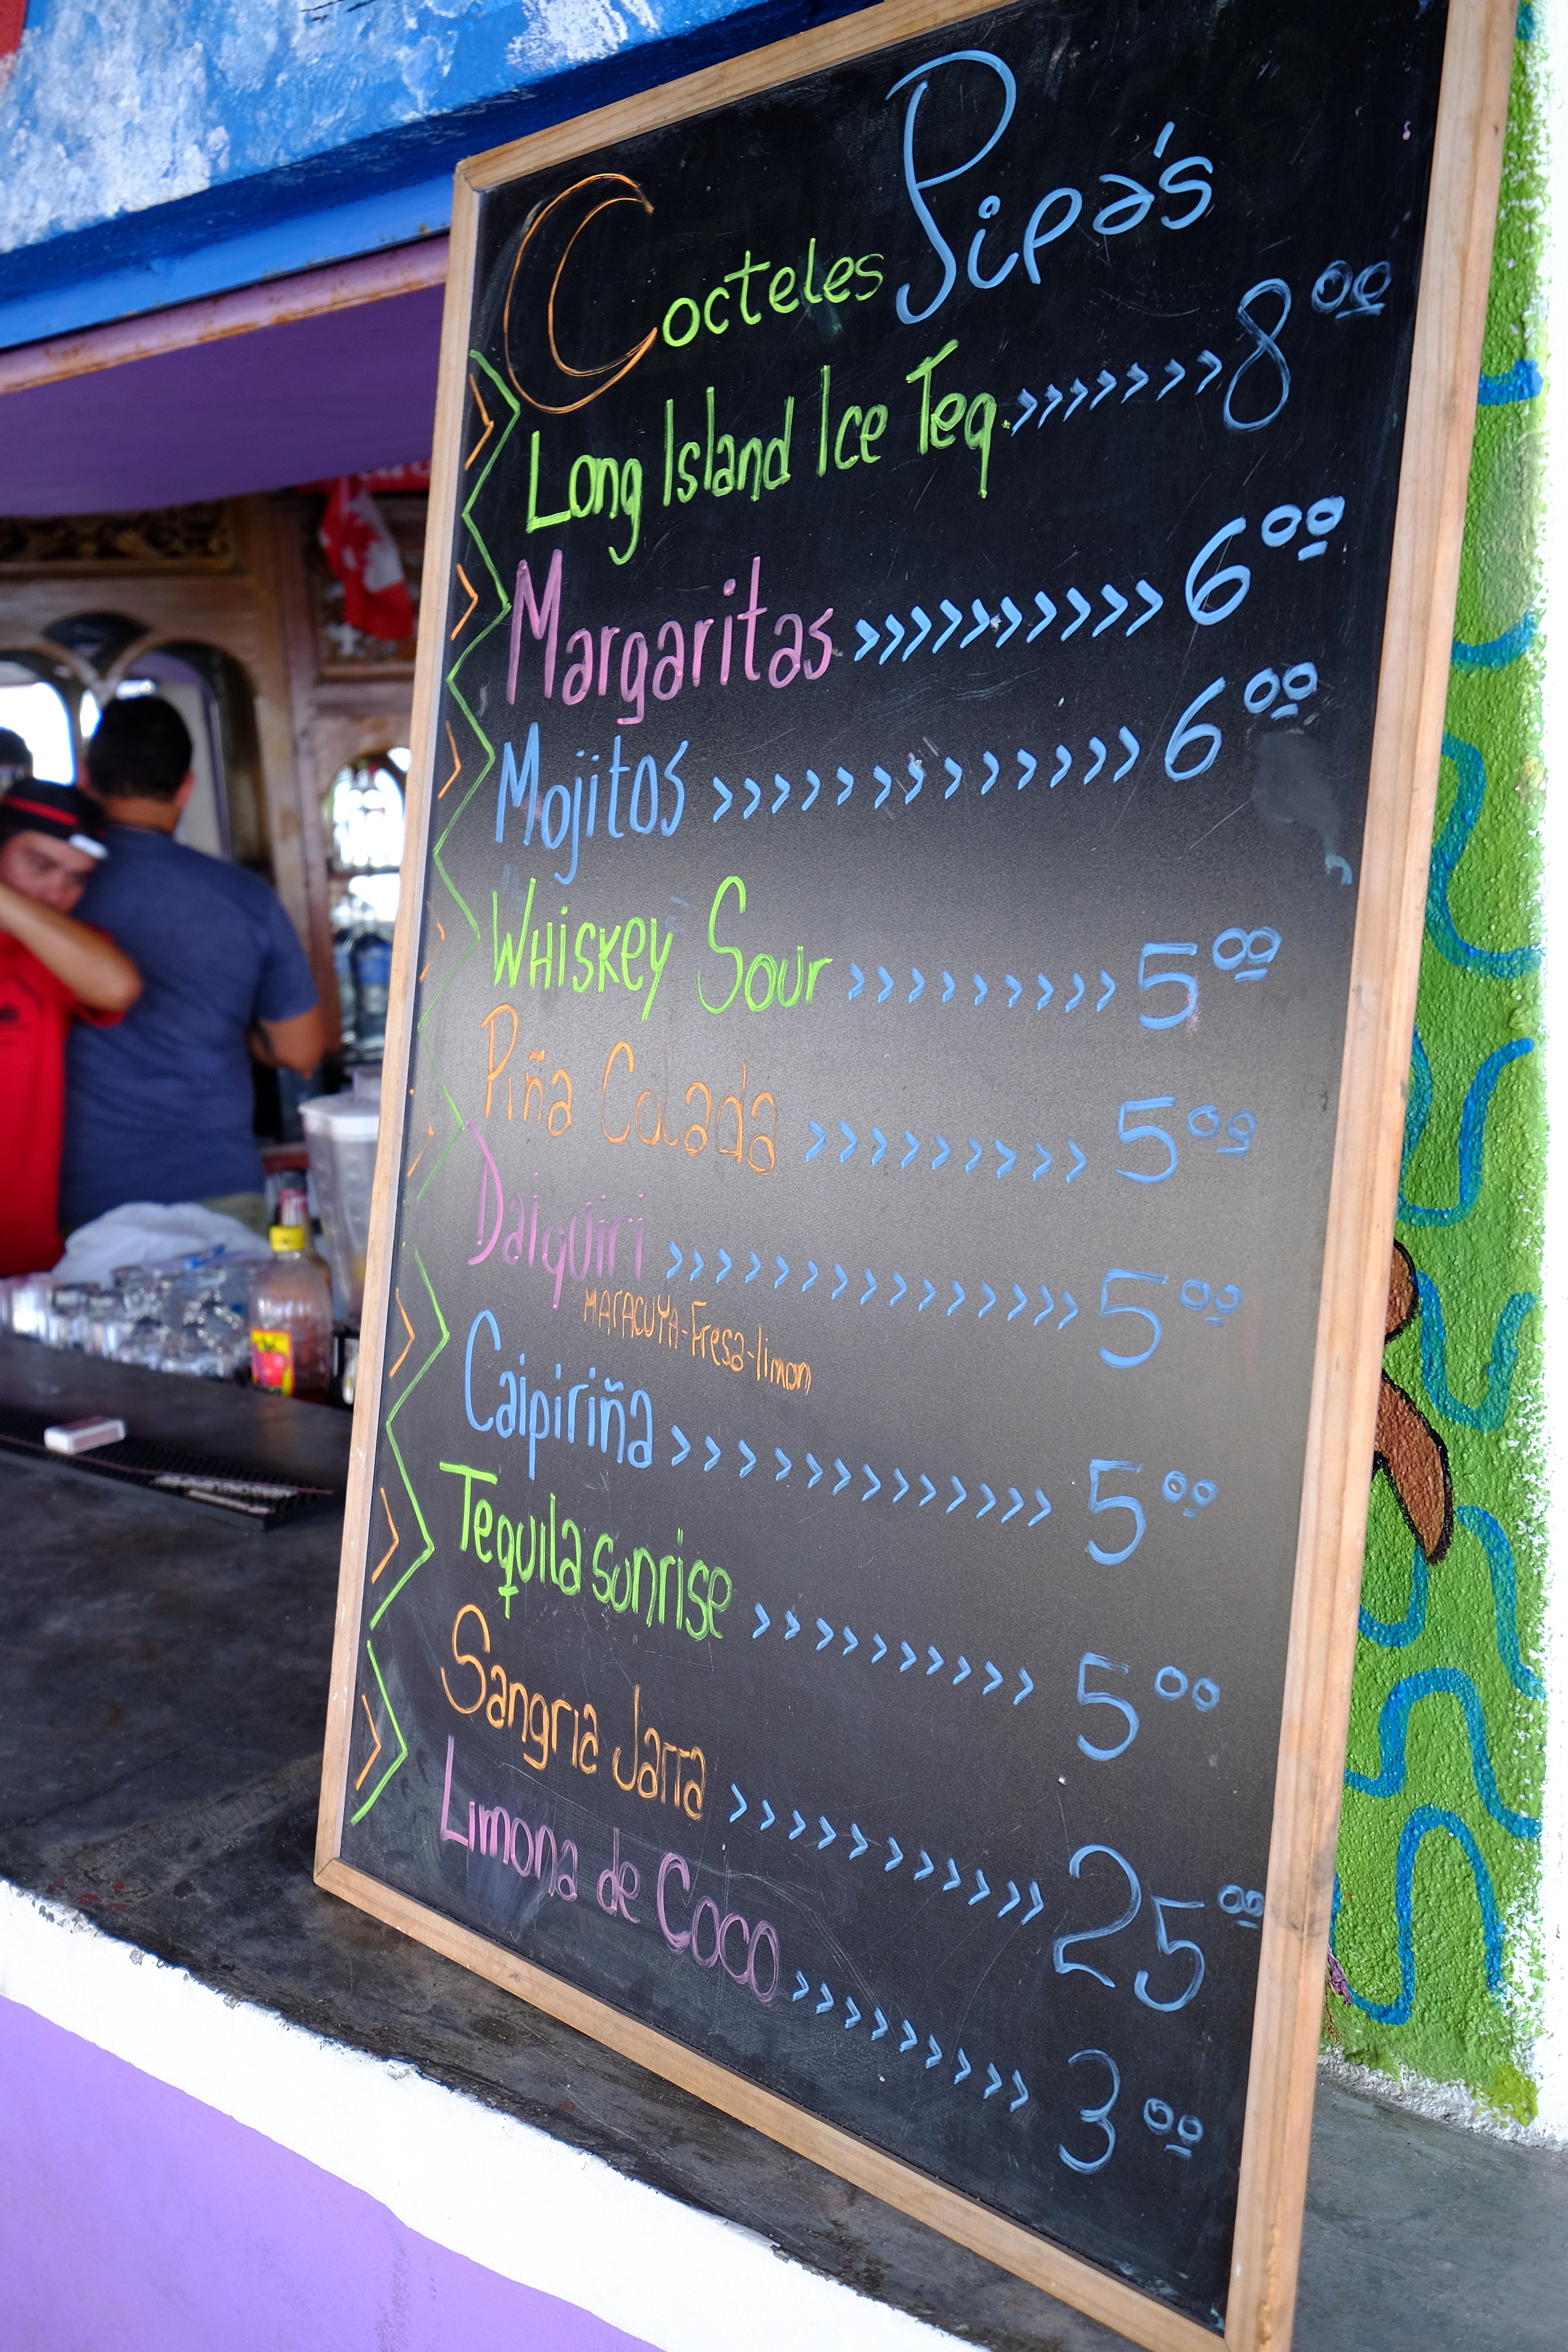 Cocteles Pipa's
Long Island Ice Teq. >>>>>>> 8 00
Margaritas >>>>>>>>>> 6 00
Mojitos >>>>>>>>>>>>> 6 00
WHiSKEY Sour >>>>>>>>> 5 00
Piña Colada >>>>>>>>> 5 00
Daiquiri >>>>>>>>>>>>>> 5 00
MARACUYA-Fresa-limon
Caipiriña >>>>>>>>>>>>> 5 00
Tequila sunrise >>>>>>>>>> 5 00
Sangria Jarra >>>>>>>>>>> 25 00
Limona de Coco >>>>>>>>> 3 00